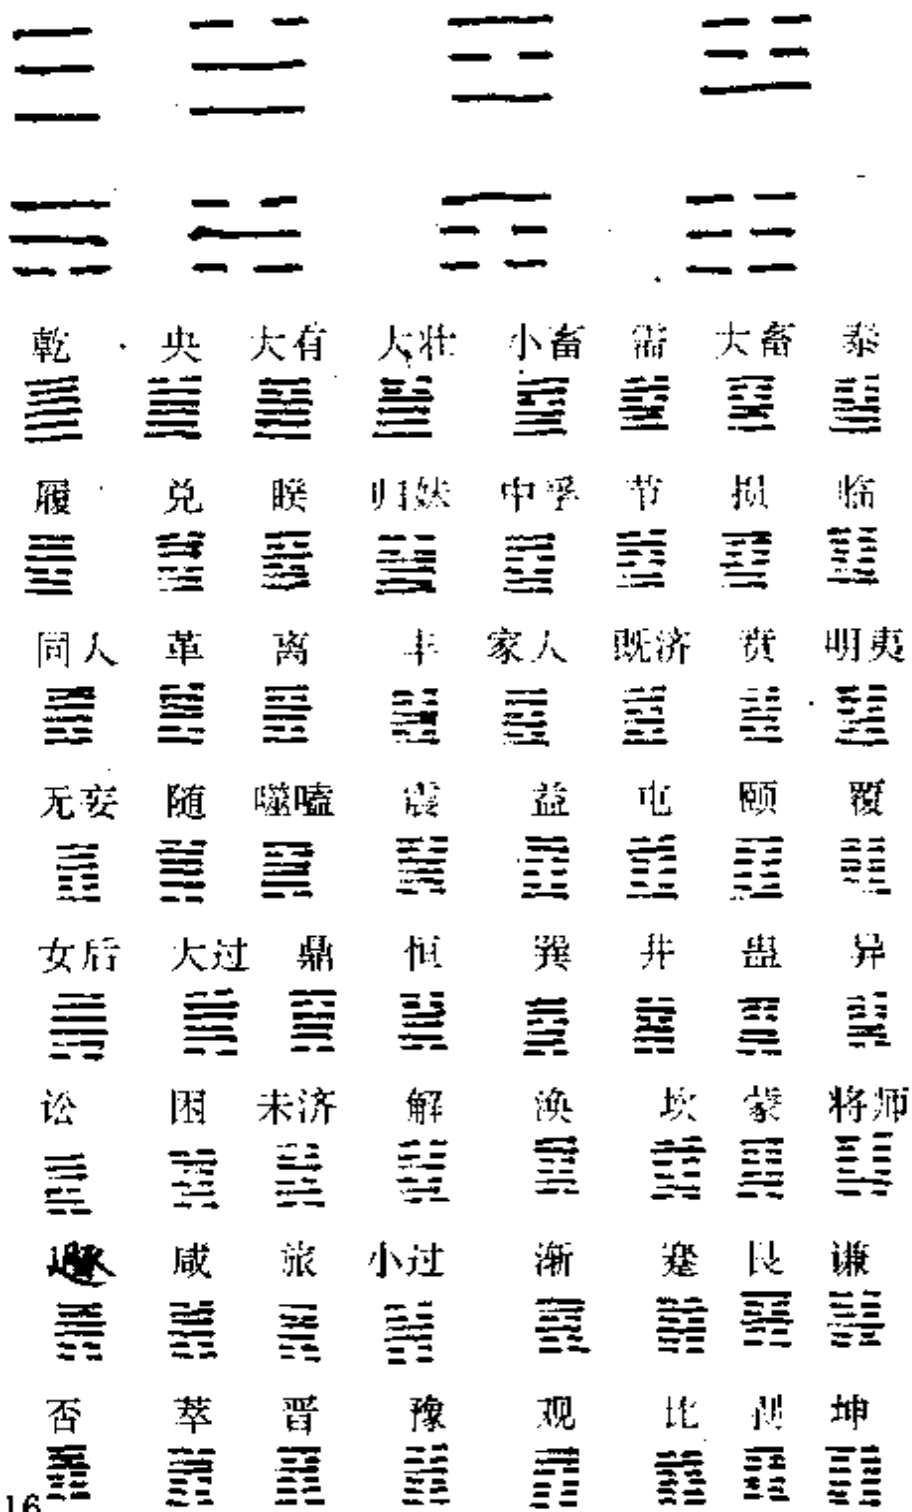 乾 央 大有 大壮 小畜 需 大畜 泰
履 兑 睽 归妹 中孚 节 损 临
同人 革 离 丰 家人 既济 贲 明夷
无妄 随 噬嗑 震 益 屯 颐 覆
女后 大过 鼎 恒 巽 井 蛊 异
讼 困 未济 解 涣 坎 蒙 将师
咸 旅 小过 渐 蹇 艮 谦
否 萃 晋 豫 观 比 剥 坤
16